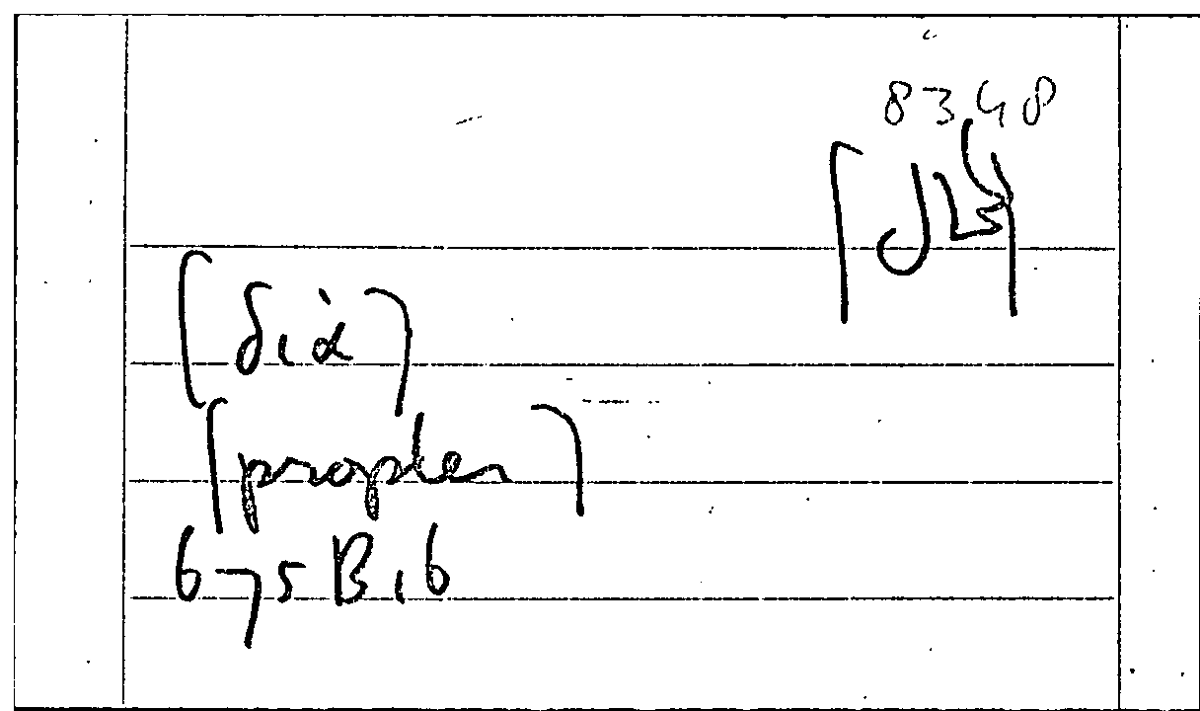 8348
[διὰ]
[propter]
675 B 16